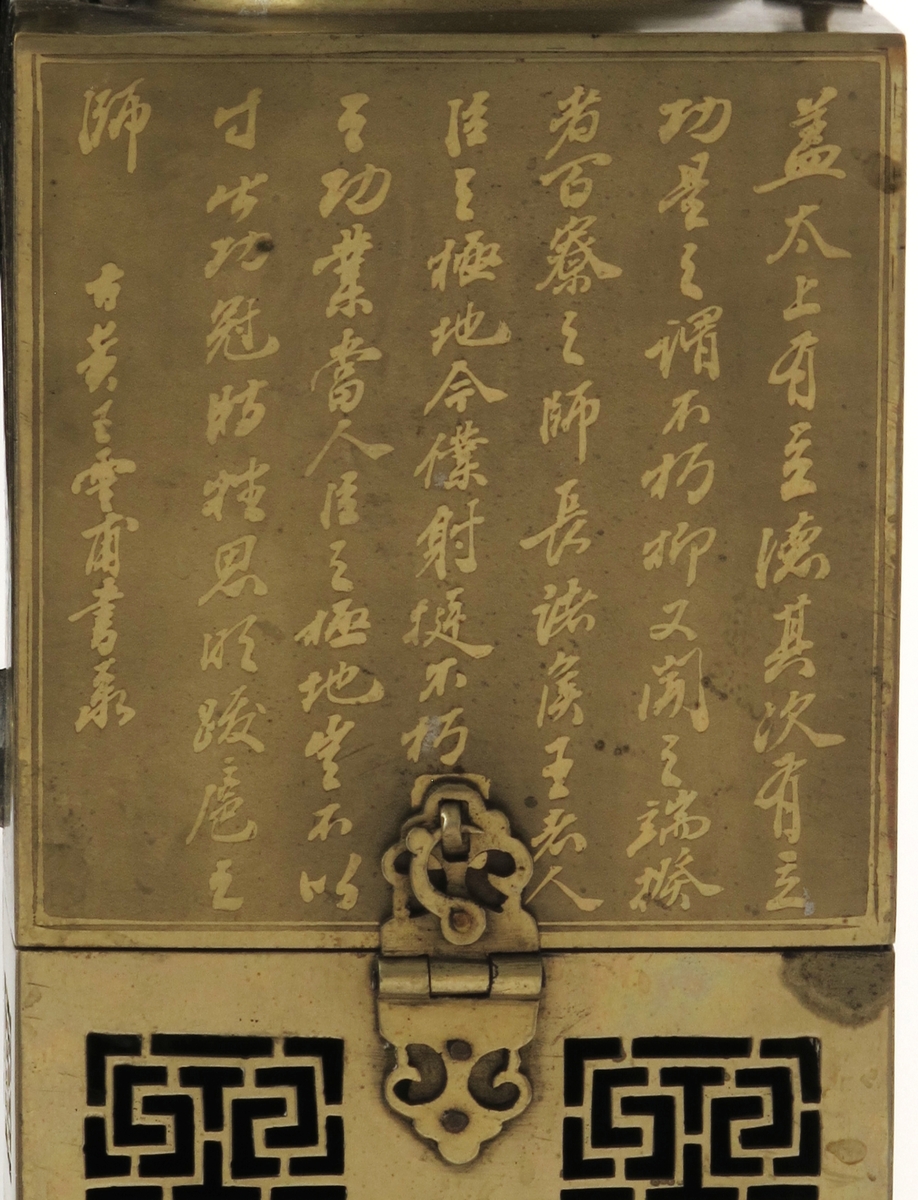 蓋太上有立德其次有立
功是之謂不朽抑又聞之端揆
者百寮之師長諸侯王者人
臣之極地今僕射挺不朽
之功業當人臣之極地豈不以
才功冠時挫思明跋扈之
師 古黃王雲甫書